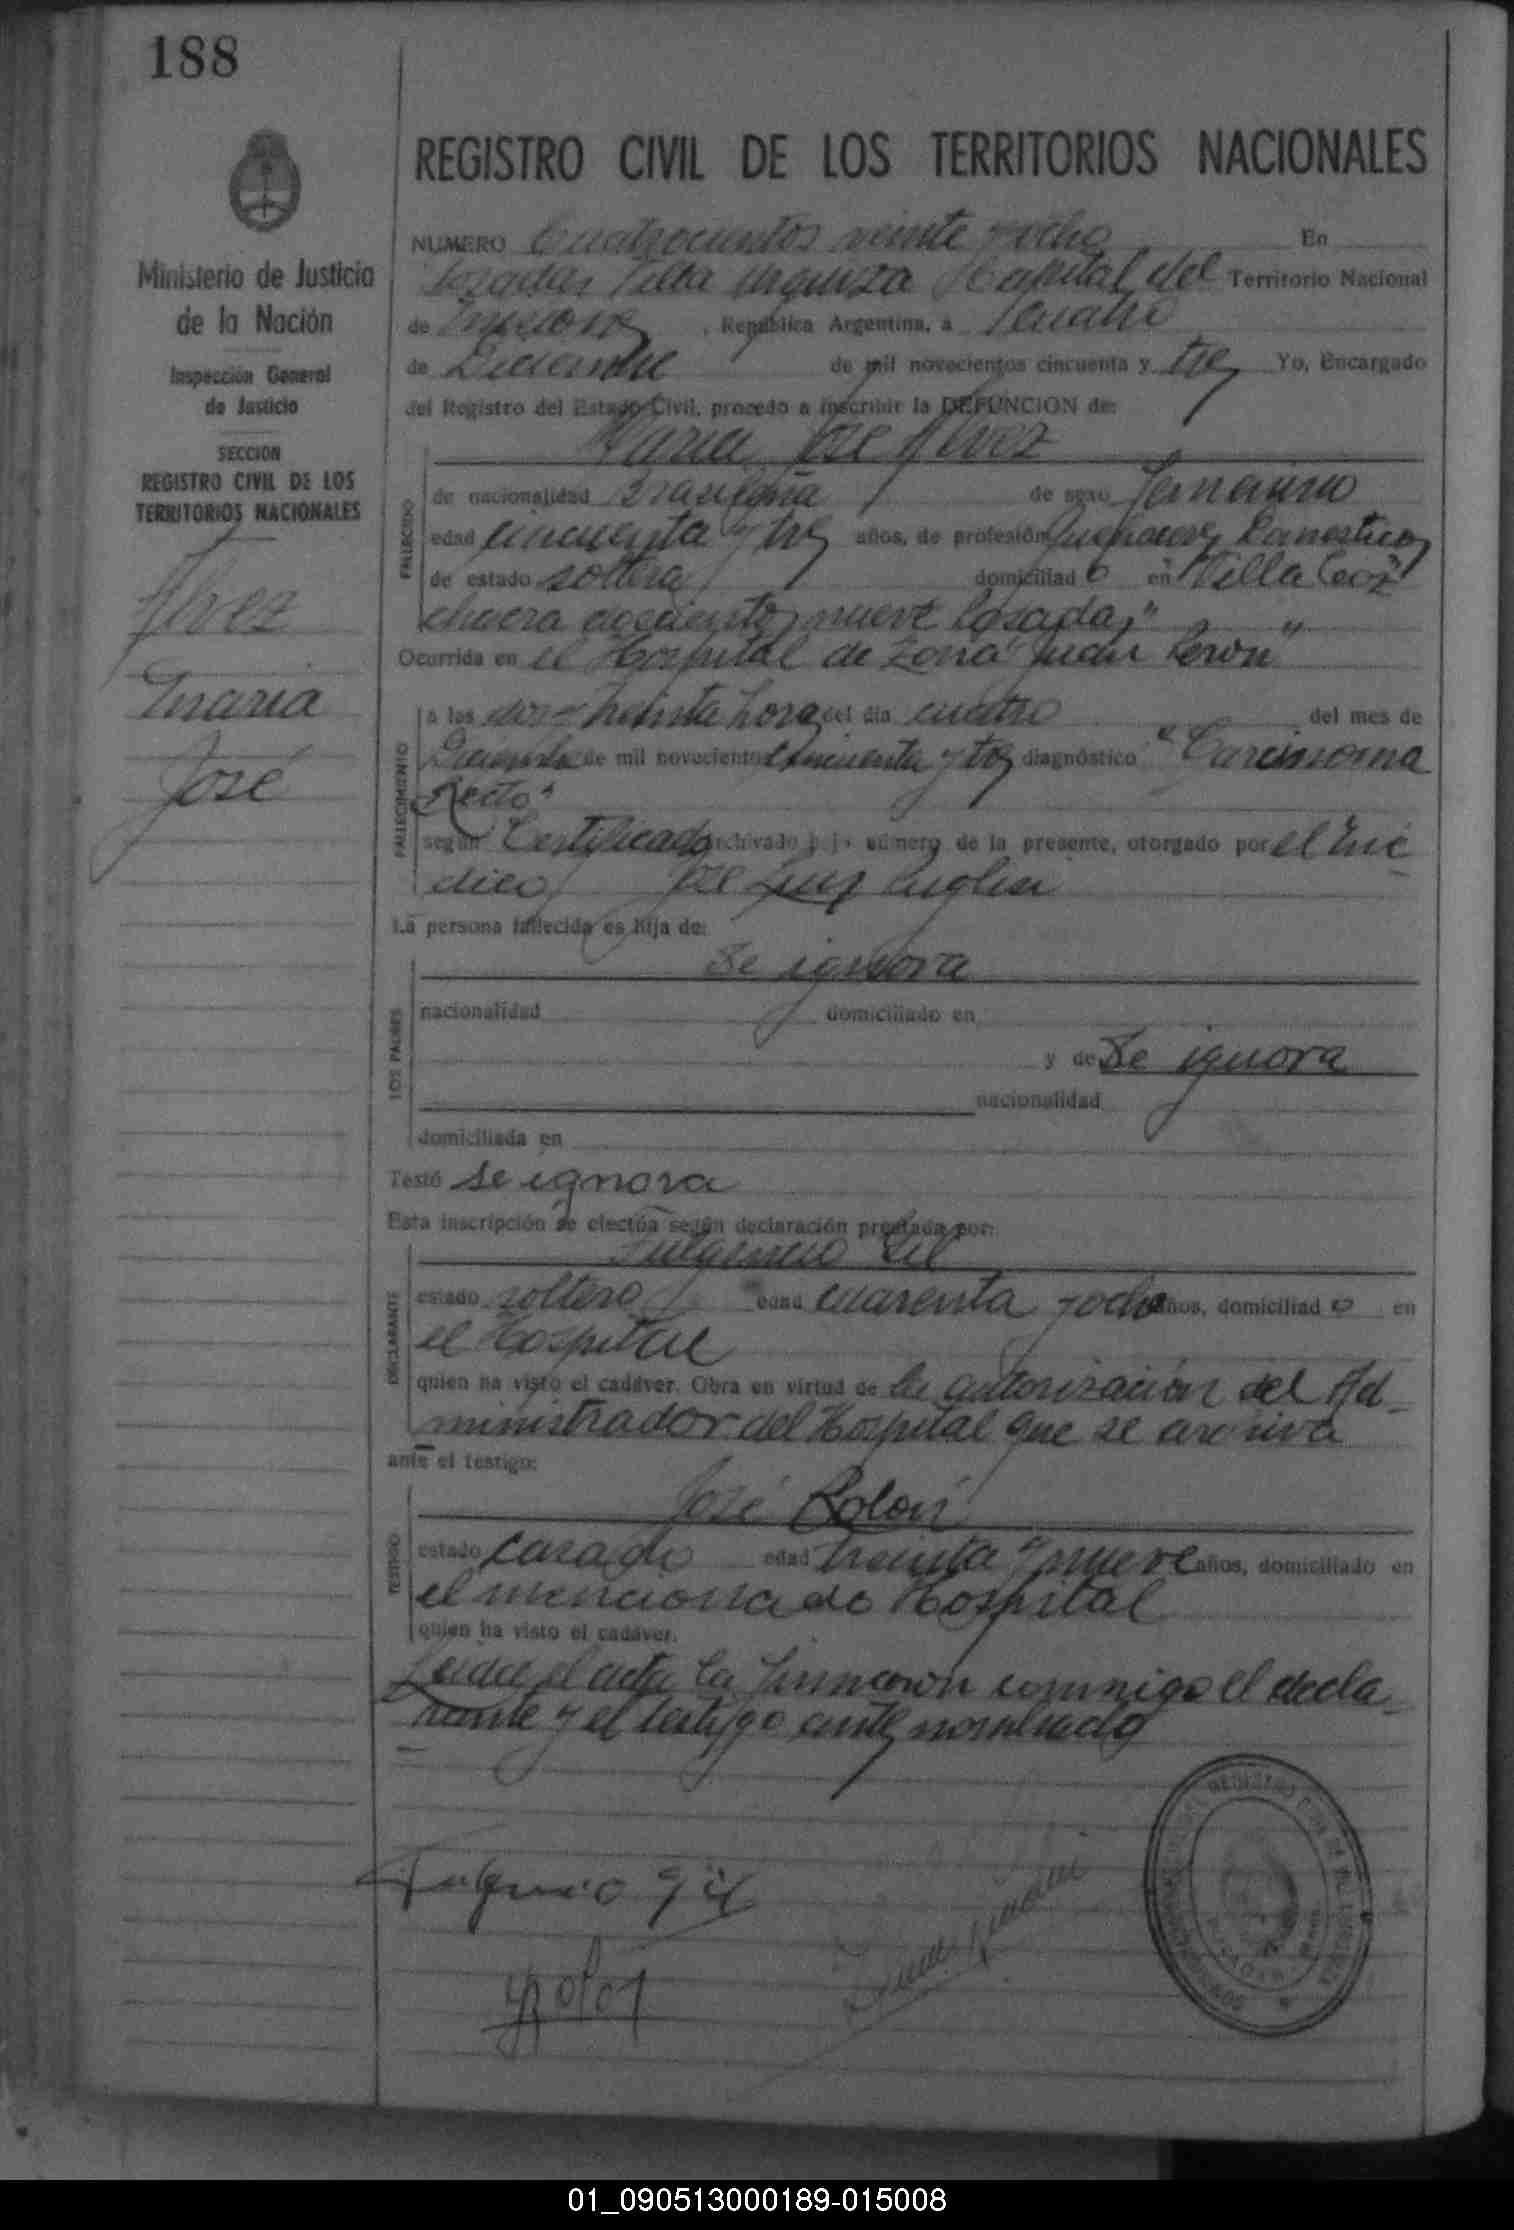 188
REGISTRO CIVIL DE LOS TERRITORIOS NACIONALES
Ministerio de Justicia
de la Nación
Inspección General
de Justicia
SECCION
REGISTRO CIVIL DE LOS
TERRITORIOS NACIONALES
Alvez
Maria
José
NUMERO Cuatrocientos veinte y ocho En
Posadas Villa Urquiza Capital del Territorio Nacional
de Misiones, República Argentina, a Cuatro
de Diciembre de mil novecientos cincuenta y tres Yo, Encargado
del Registro del Estado Civil, procedo a inscribir la DEFUNCION de:
Maria José Alvez
FALLECIDO
de nacionalidad Brasileña de sexo femenino
edad cincuenta y tres años, de profesión Quehaceres Domesticos
de estado soltera domiciliado en Villa
nueve Posadas"
Ocurrida en el Hospital de Zona "Juan Perón"
FALLECIMIENTO
a las treinta horas del día cuatro del mes de
Diciembre de mil novecientos cincuenta y tres diagnóstico "Carcinoma
Recto"
según Certificado archivado bajo número de la presente, otorgado por el mé
dico José Luis
La persona fallecida es hija de:
LOS PADRES
Se ignora
nacionalidad domiciliado en
y de Se ignora
nacionalidad
domiciliada en
Testó se ignora
Esta inscripción se efectúa según declaración prestada por:
DECLARANTE
Fulgencio Gil
estado soltero edad cuarenta y ocho años, domiciliado en
el Hospital
quien ha visto el cadáver. Obra en virtud de la autorización del Ad-
ministrador del Hospital que se archiva
ante el testigo:
TESTIGO
José Rolón
estado casado edad treinta y nueve años, domiciliado en
el mencionado Hospital
quien ha visto el cadáver.
Leida el acta la firmaron conmigo el decla-
rante y el testigo antes nombrado
Fulgencio Gil
JRolon
REGISTRO CIVIL
01_090513000189-015008